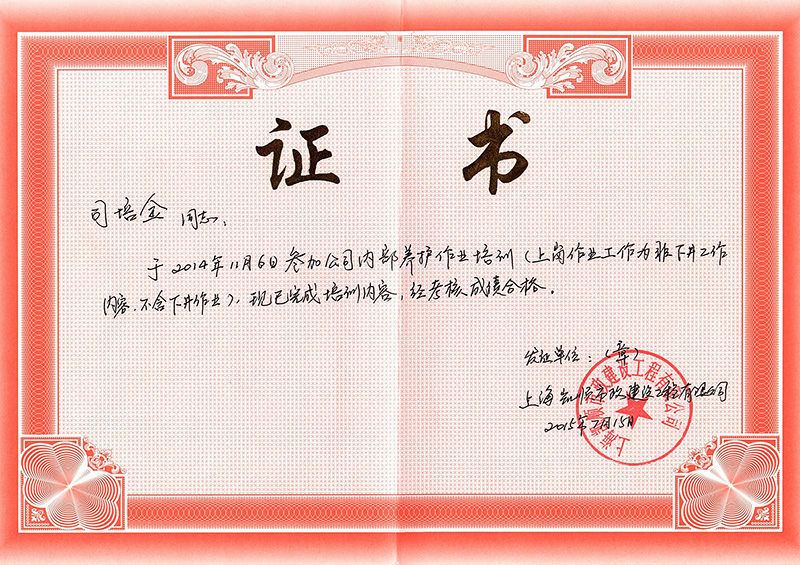 证 书
司培金 同志:
于2014年11月6日参加公司内部养护作业培训（上岗作业工作为非下井工作
内容,不含下井作业）,现已完成培训内容,经考核成绩合格。
发证单位:（章）
上海 顺市政建设工程有限公司
2015年7月15日